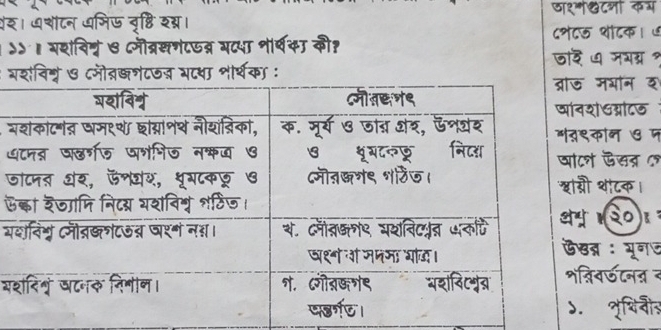 হয়। এখানে এসিড বৃষ্টি হয়।
১১। মহাবিশ্ব ও সৌরজগতের মধ্যে পার্থক্য কী?
মহাবিশ্ব ও সৌরজগতের মধ্যে পার্থক্য :
মহাবিশ্ব
সৌরজগৎ
মহাকাশের অসংখ্য ছায়াপথ নীহারিকা,
এদের অন্তর্গত অগণিত নক্ষত্র ও
তাদের গ্রহ, উপগ্রহ, ধূমকেতু ও
উল্কা ইত্যাদি নিয়ে মহাবিশ্ব গঠিত।
ক. সূর্য ও তার গ্রহ, উপগ্রহ
ও ধূমকেতু নিয়ে
সৌরজগৎ গঠিত।
মহাবিশ্ব সৌরজগতের অংশ নয়।
খ. সৌরজগৎ মহাবিশ্বের একটি
অংশ বা সদস্য মাত্র।
মহাবিশ্ব অনেক বিশাল।
গ. সৌরজগৎ মহাবিশ্বের
অন্তর্গত।
থাকে।
তাই এ সময়
রাত সমান
আবহাওয়াতে
শরৎকাল ও
স্থায়ী থাকে।
প্রশ্ন ॥ ২০ ॥
উত্তর :
পরিবর্তনের
১.